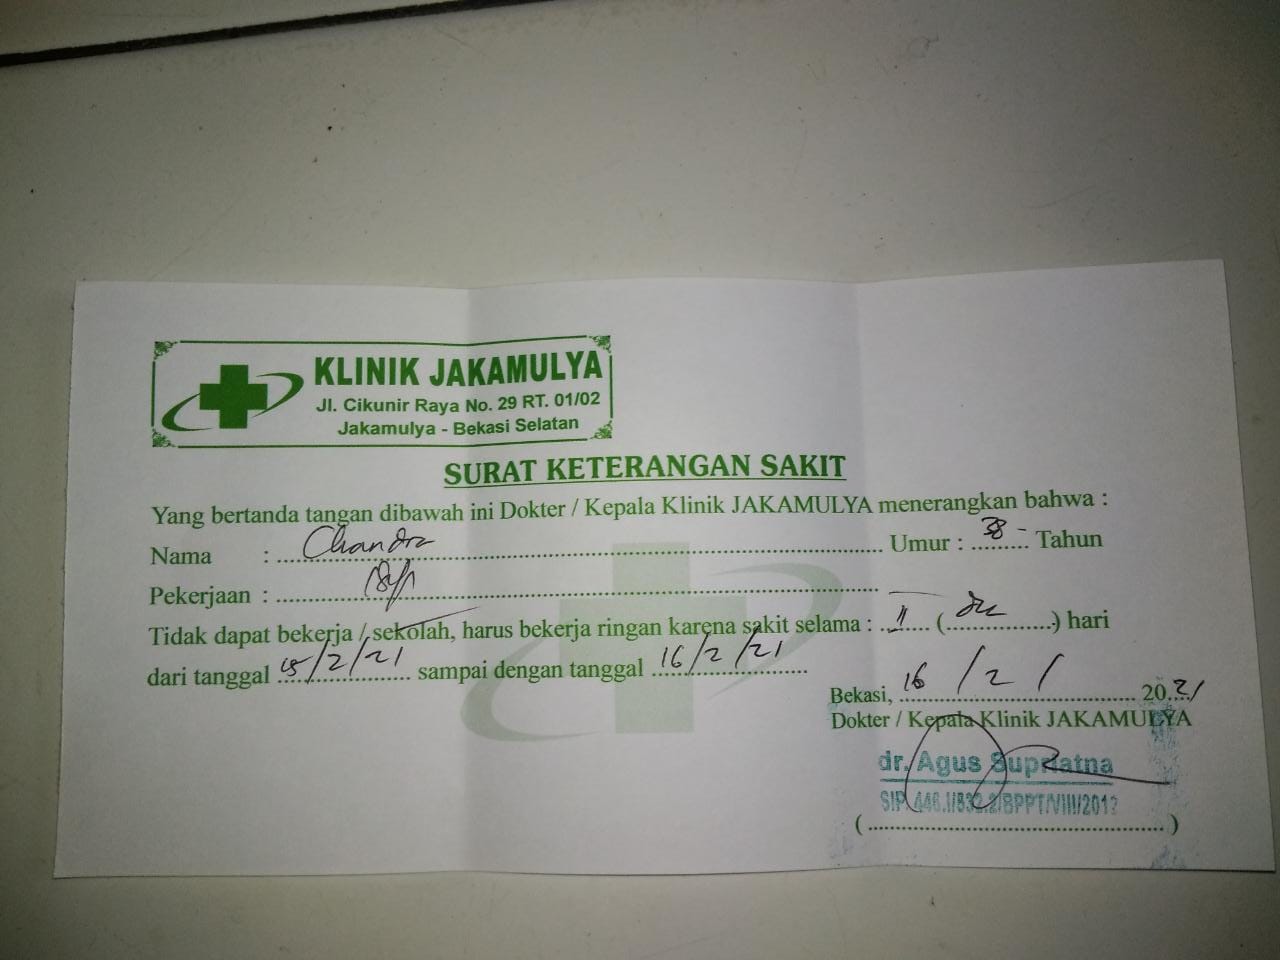 KLINIK JAKAMULYA
Jl. Cikunir Raya No. 29 RT. 01/02
Jakamulya - Bekasi Selatan
SURAT KETERANGAN SAKIT
Yang bertanda tangan dibawah ini Dokter / Kepala Klinik JAKAMULYA menerangkan bahwa :
Nama : Chandra Umur : 38 - Tahun
Pekerjaan :
Tidak dapat bekerja / sekolah, harus bekerja ringan karena sakit selama : II (..................) hari
dari tanggal 15/2/21 sampai dengan tanggal 16/2/21
Bekasi, 16/2/ 2021
Dokter / Kepala Klinik JAKAMULYA
dr. Agus Supriatna
SIP. 446.1/832.2/BPPT/VIII/2013
(..................................................)